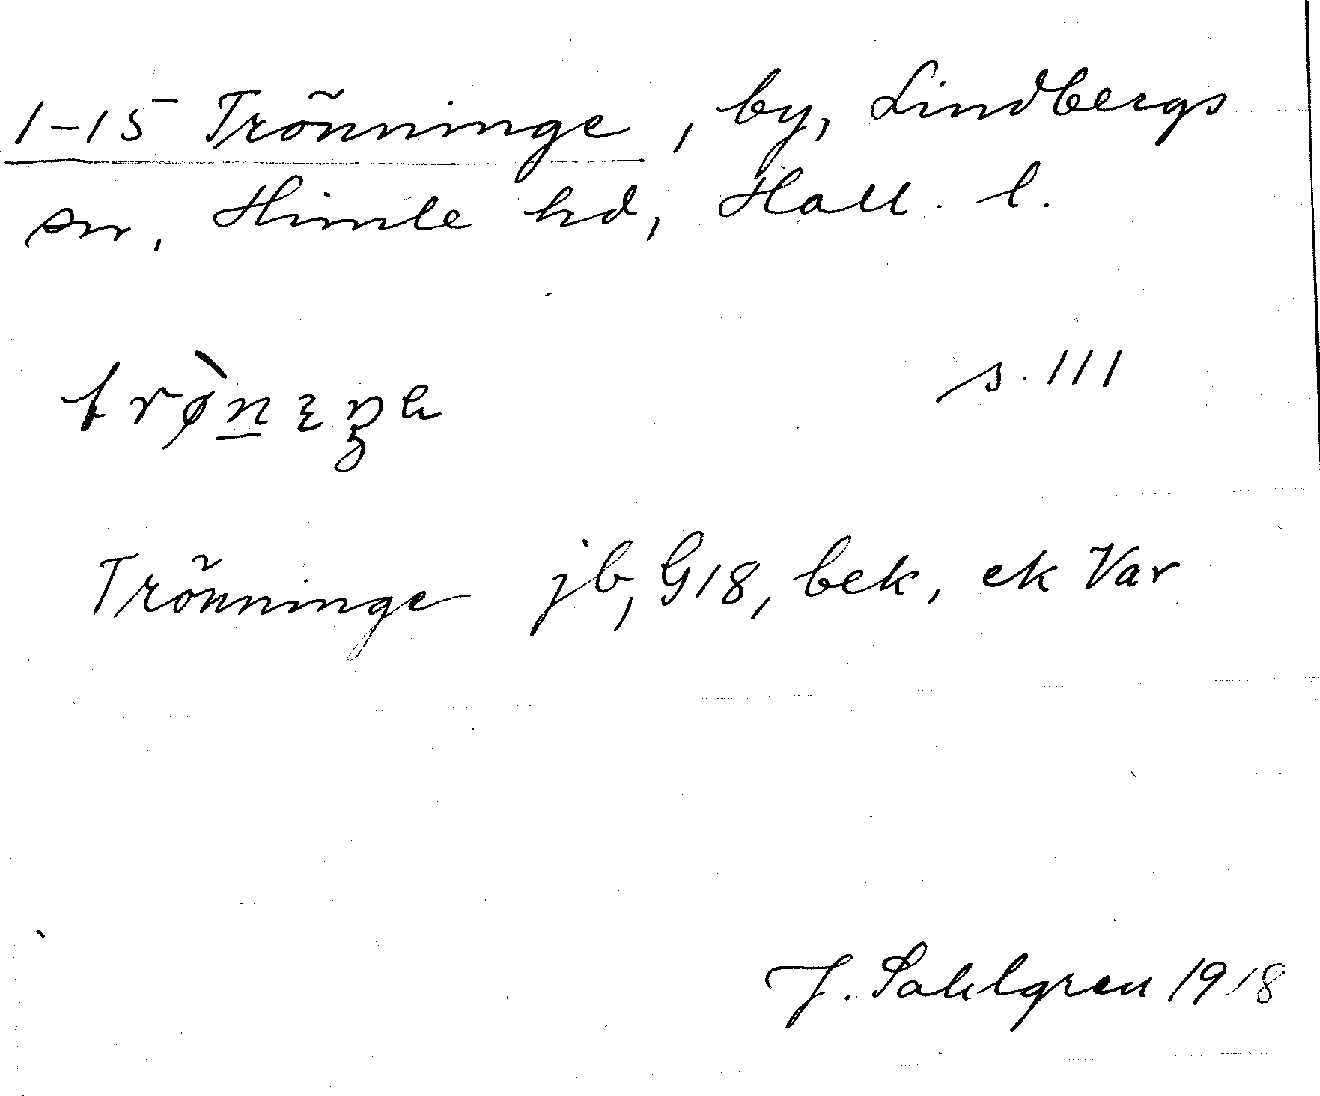 1-15 Trönninge, by, Lindbergs
sn, Himle hd, Hall. l.
s. 111
Trönninge jb, G18, bek, ek Var
J. Sahlgren 1918